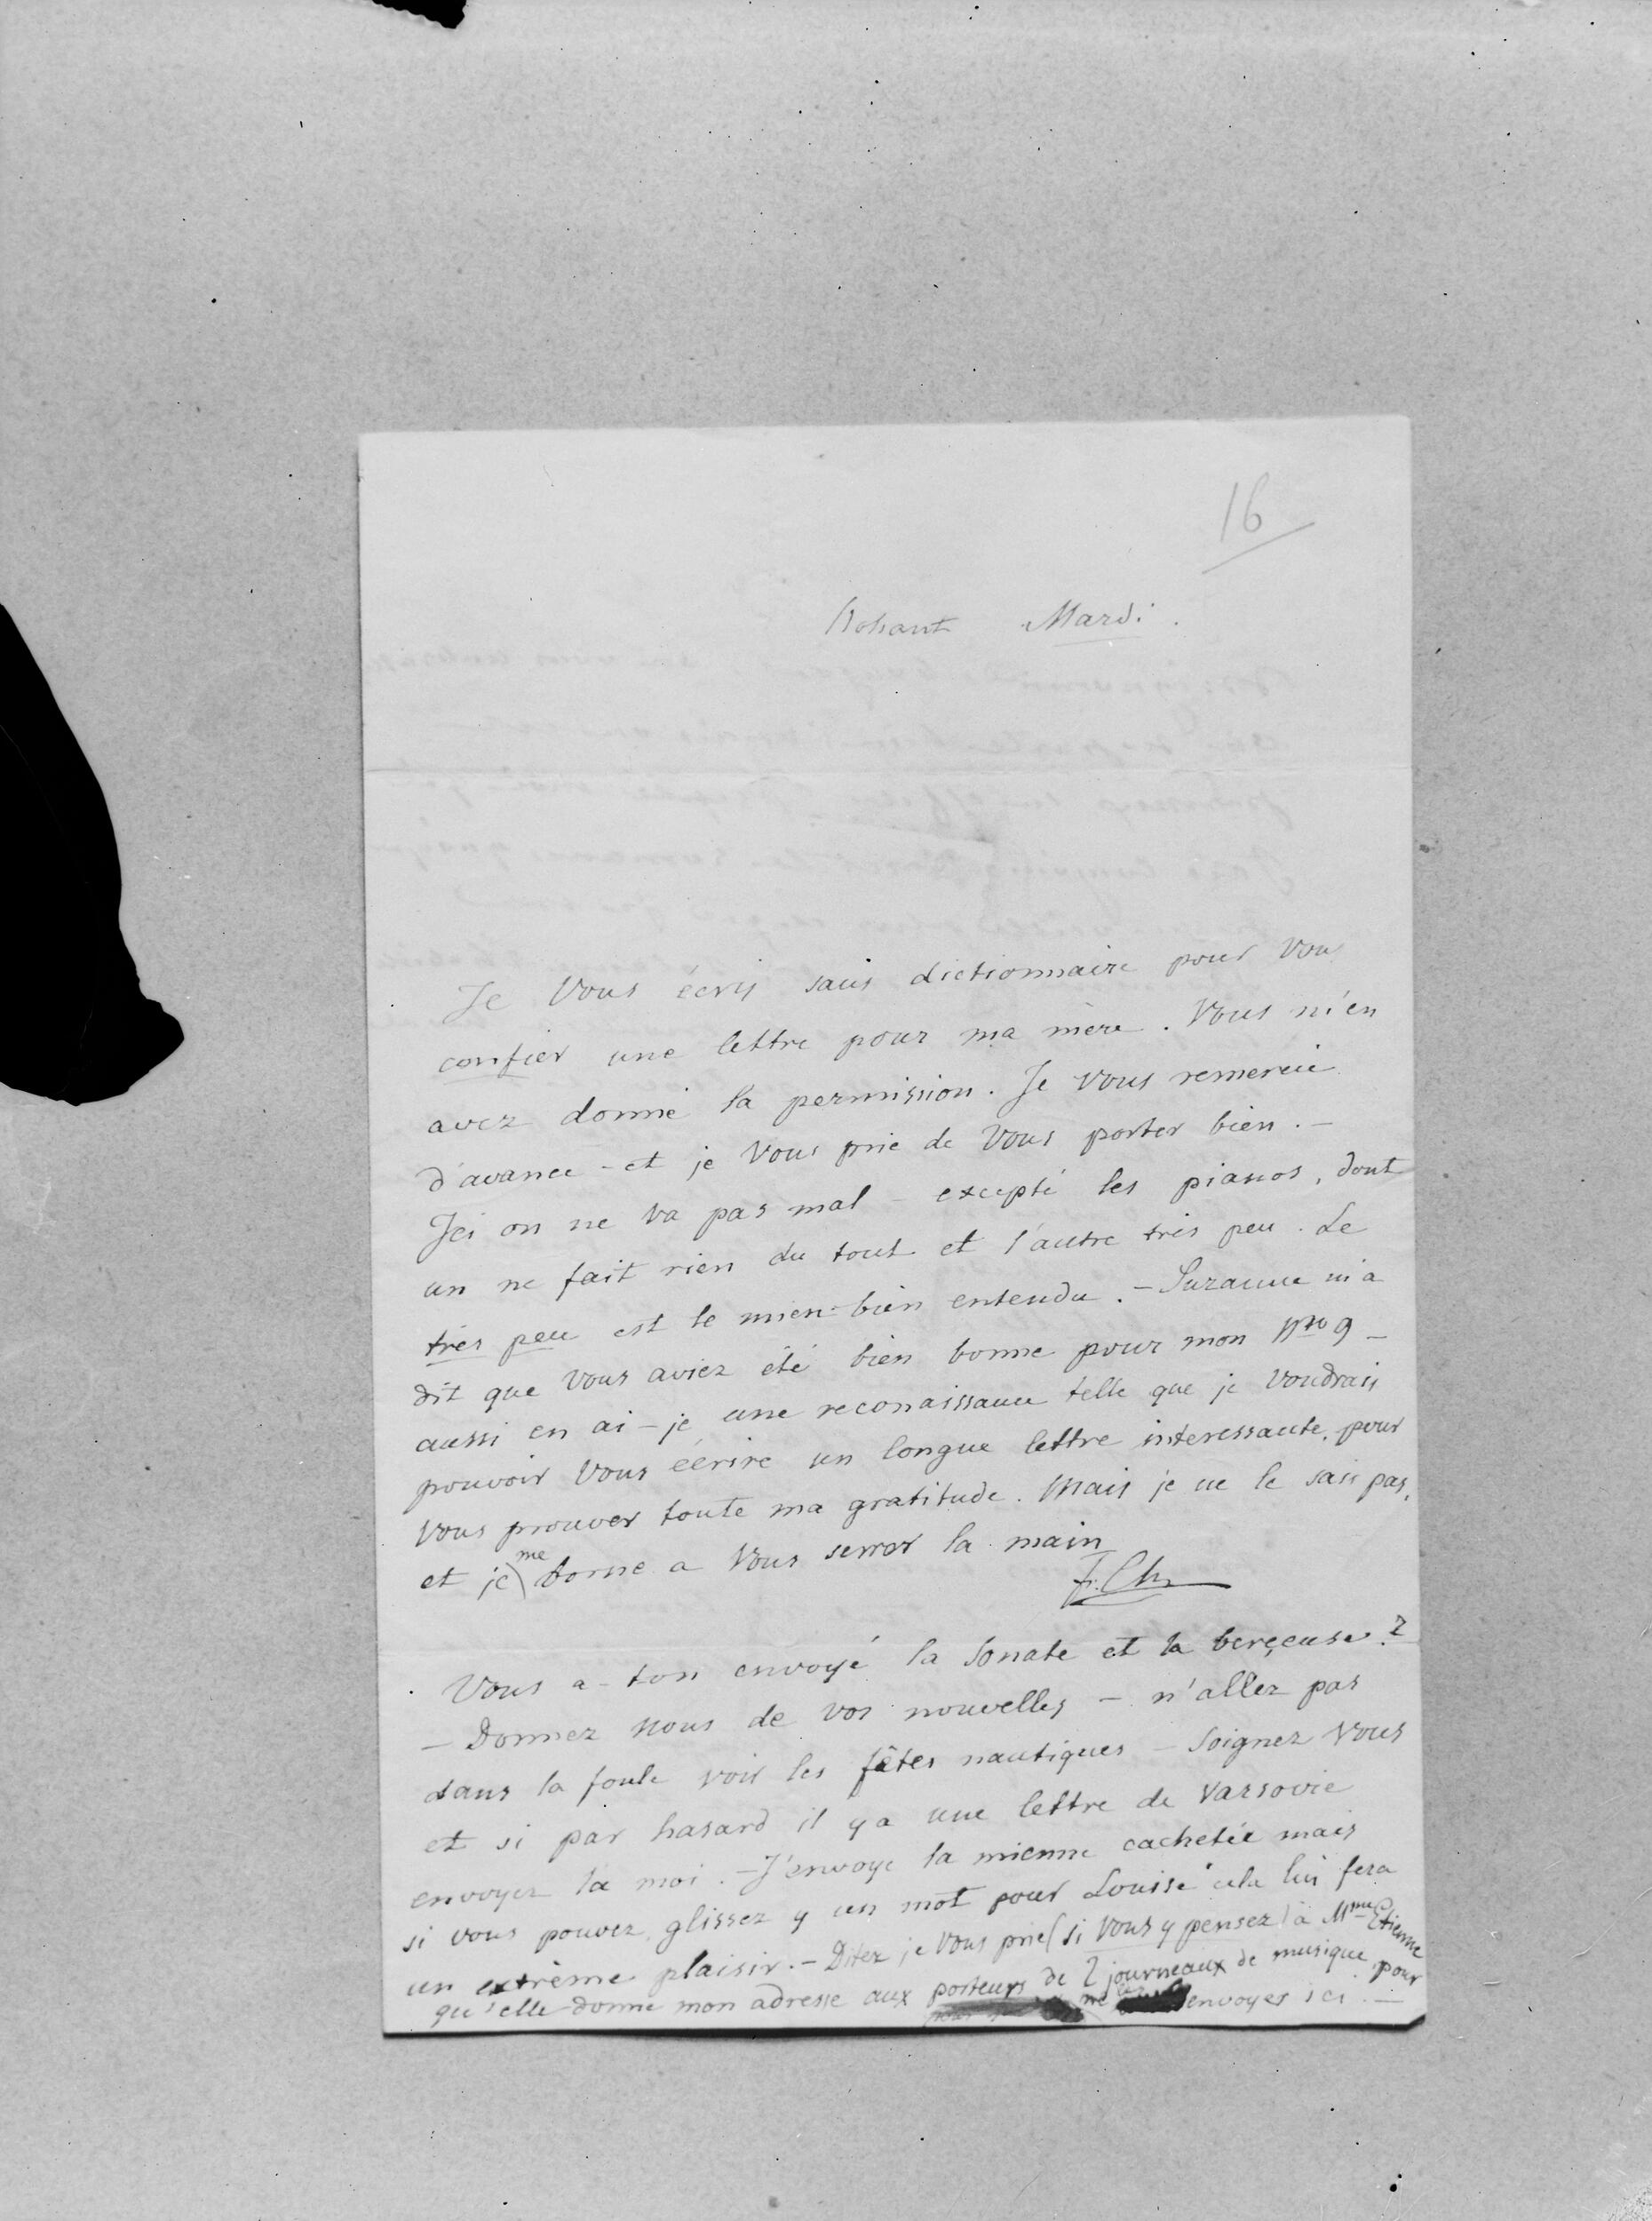 16
Nohant Mardi.
Je Vous écris sans dictionnaire pour Vous
confier une lettre pour ma mère. Vous m'en
avez donné la permission. Je Vous remercie
d'avance - et je Vous prie de Vous porter bien. –
Ici on ne va pas mal – excepté les pianos, dont
un ne fait rien du tout et l'autre très peu. Le
très peu est le mien - bien entendu. – Suzanne m'a
dit que Vous aviez été bien bonne pour mon Nro 9 –
aussi en ai-je une reconaissance telle que je Voudrais
pouvoir Vous écrire un longue lettre interessante, pour
Vous prouver toute ma gratitude. Mais je ne le sais pas,
et je me borne a Vous serrer la main
F. Ch
Vous a-ton envoyé la Sonate et la berçeuse?
– Donnez nous de vos nouvelles – n'allez pas
dans la foule voir les fêtes nautiques – Soignez Vous
et si par hasard il y a une lettre de Varsovie
envoyez la moi. – J'envoye la mienne cachetée mais
si vous pouvez, glissez y un mot pour Louise cela lui fera
un extrème plaisir. – Ditez je Vous prie (si Vous y pensez) à Mme Etienne
qu'elle donne mon adresse aux porteurs de 2 journeaux de musique pour
me les envoyer ici. –